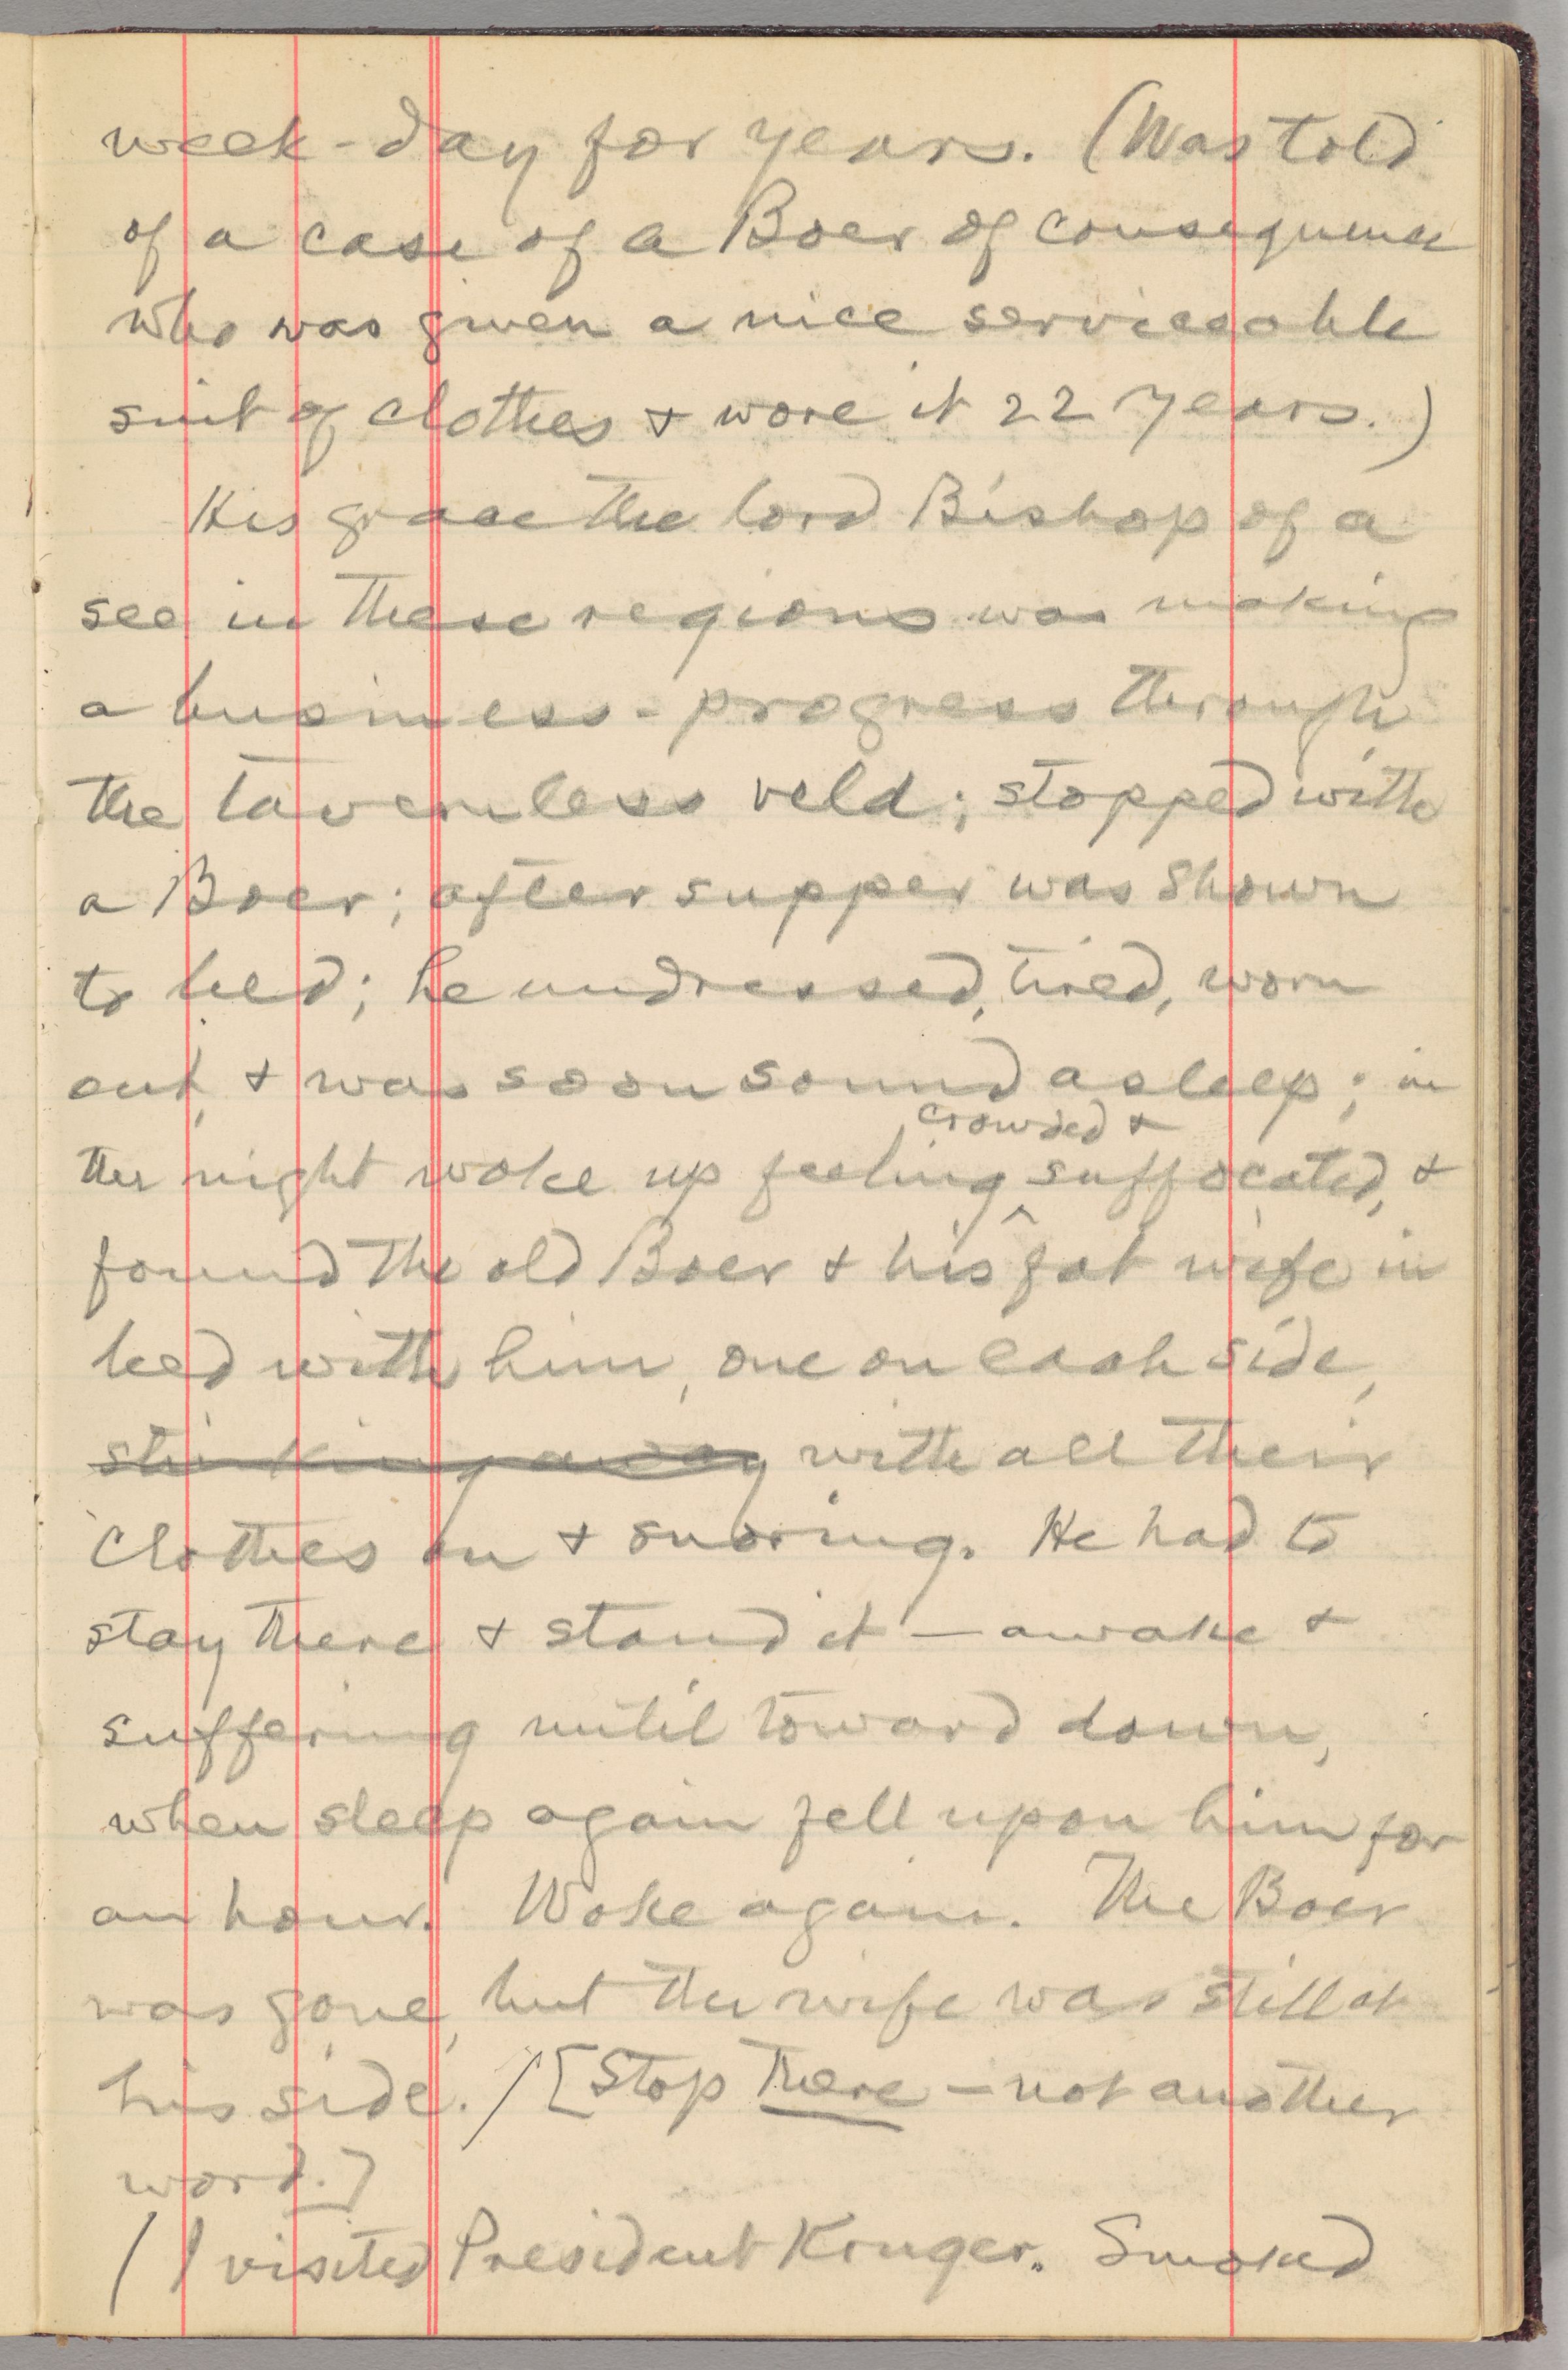 week-day for years. (Was told
of a case of a Boer of consequence
who was given a nice serviceable
suit of clothes & wore it 22 years.)
His grace the lord Bishop of a
see in these regions was making
a business-progress through
the tavernless veld; stopped with
a Boer; after supper was shown
to bed; he undressed, tired, worn
out, & was soon sound asleep; in
crowded &
the night woke up feeling ^ suffocated, &
found the old Boer & his fat wife in
bed with him, one on each side,
stinking away with all their
clothes on & snoring. He had to
stay there & stand it — awake &
suffering until toward dawn,
when sleep again fell upon him for
an hour. Woke again. The Boer
was gone, but the wife was still at
his side. / [Stop there — not another
word.]
/ I visited President Kruger. Smoked